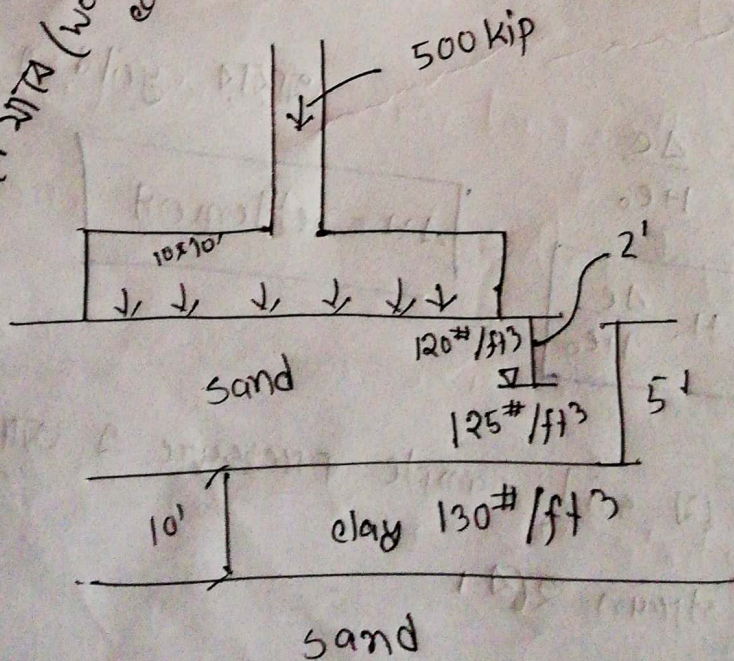 500 kip
10x10'
2'
120#/ft3
sand
125#/ft3
5'
10'
clay 130#/ft3
sand